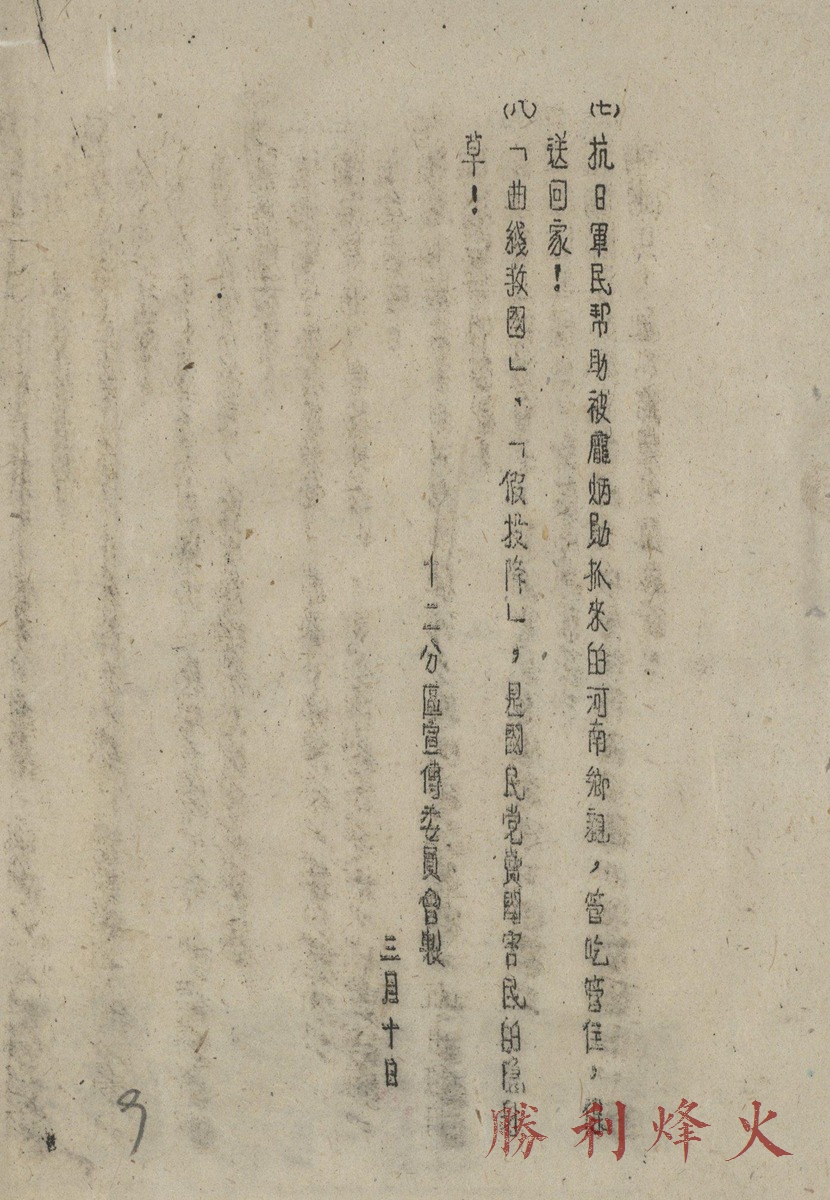 (七)抗日軍民帮助被龐炳勛抓來的河南鄉親，管吃管住，還
送回家！
(八)「曲綫救國」、「假投降」，是國民党賣國害民的隐身
草！
十二分區宣傳委員會製
三月十日
9
勝利烽火